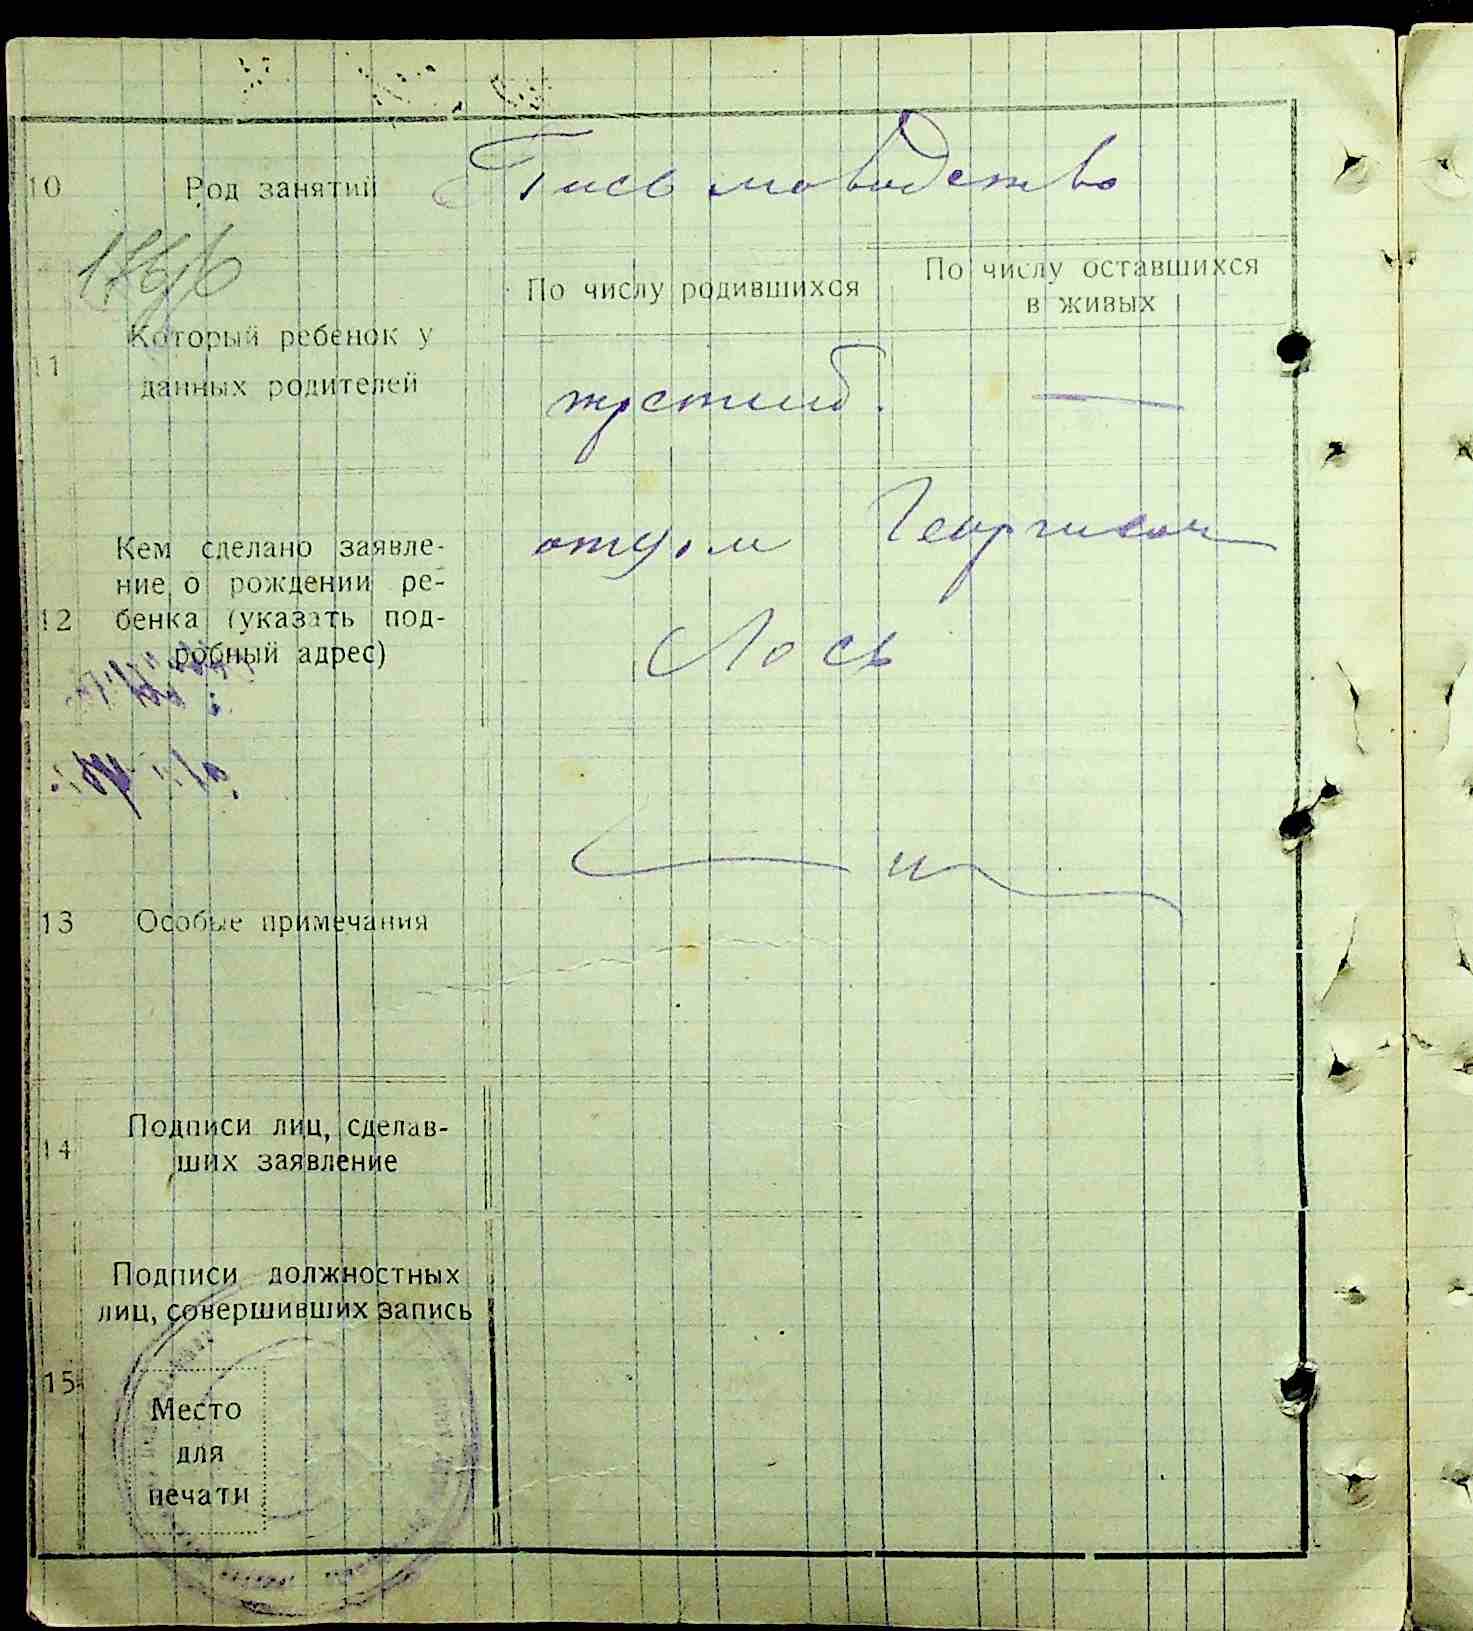 10 Род занятий Письмоводство
По числу родившихся
По числу оставшихся
в живых
Который ребенок у
11
данных родителей
третий.
Кем сделано заявле-
ние о рождении ре-
12 бенка (указать под-
робный адрес)
отцом Георгием
Лось
13 Особые примечания
Подписи лиц, сделав-
14
ших заявление
Подписи должностных
лиц, совершивших запись
15
Место
для
печати